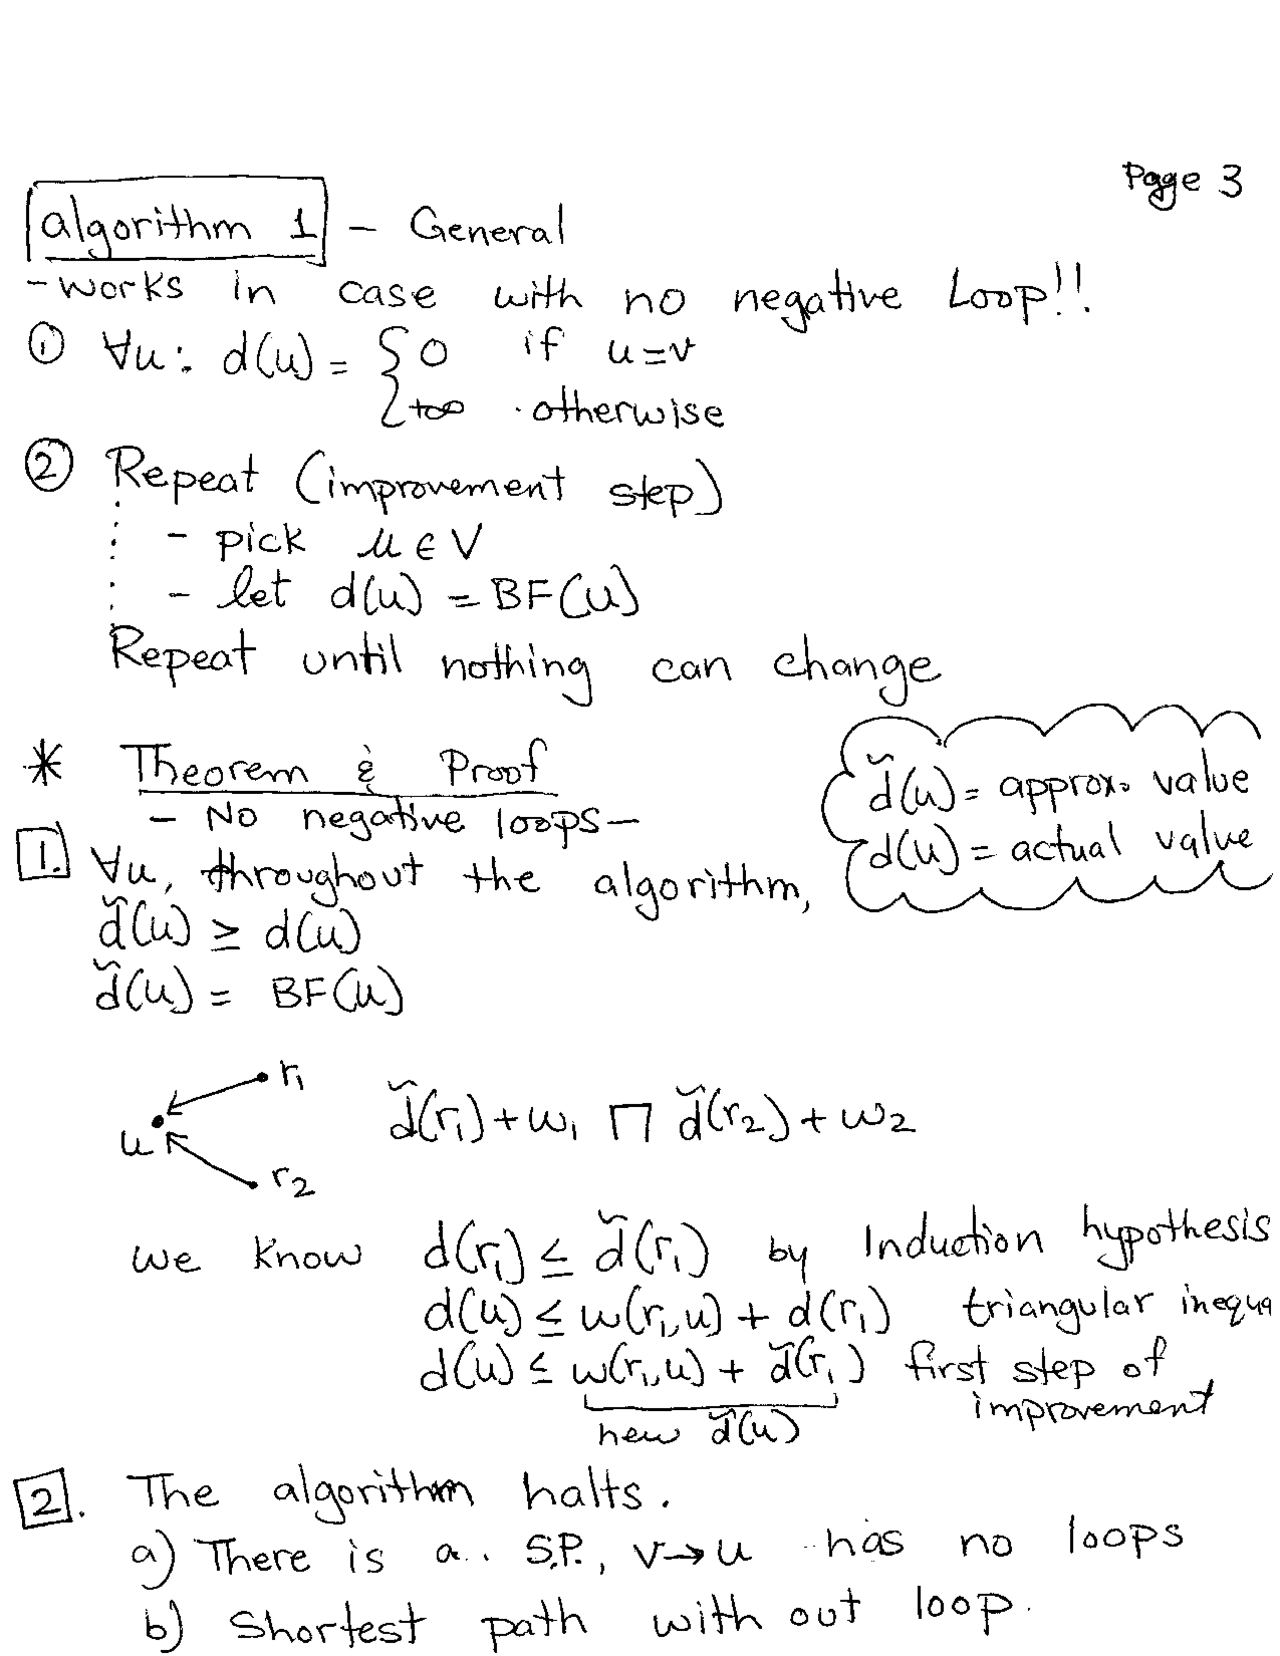 Page 3
algorithm 1 - General
- works in case with no negative Loop!!
① ∀u: d(u) = { 0 if u=v
+∞ otherwise
② Repeat (improvement step)
- pick u ∈ V
- let d(u) = BF(u)
Repeat until nothing can change
* Theorem & Proof
- No negative loops -
d̆(u) = approx. value
d(u) = actual value
1. ∀u, throughout the algorithm,
d̆(u) ≥ d(u)
d̆(u) = BF(u)
r₁
u
r₂
d̆(r₁) + w₁ ⊓ d̆(r₂) + w₂
we know d(r₁) ≤ d̆(r₁) by Induction hypothesis
d(u) ≤ w(r₁,u) + d(r₁) triangular inequa
d(u) ≤ w(r₁,u) + d̆(r₁) first step of
improvement
new d̆(u)
2. The algorithm halts.
a) There is a S.P., v→u has no loops
b) Shortest path with out loop.